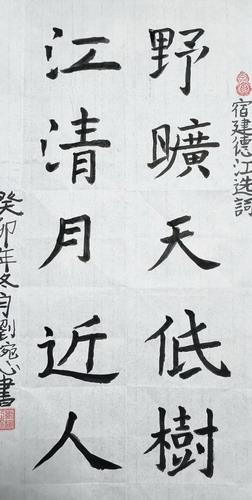 宿建德江选詞
野曠天低樹
江清月近人
癸卯年冬月劉宛心書